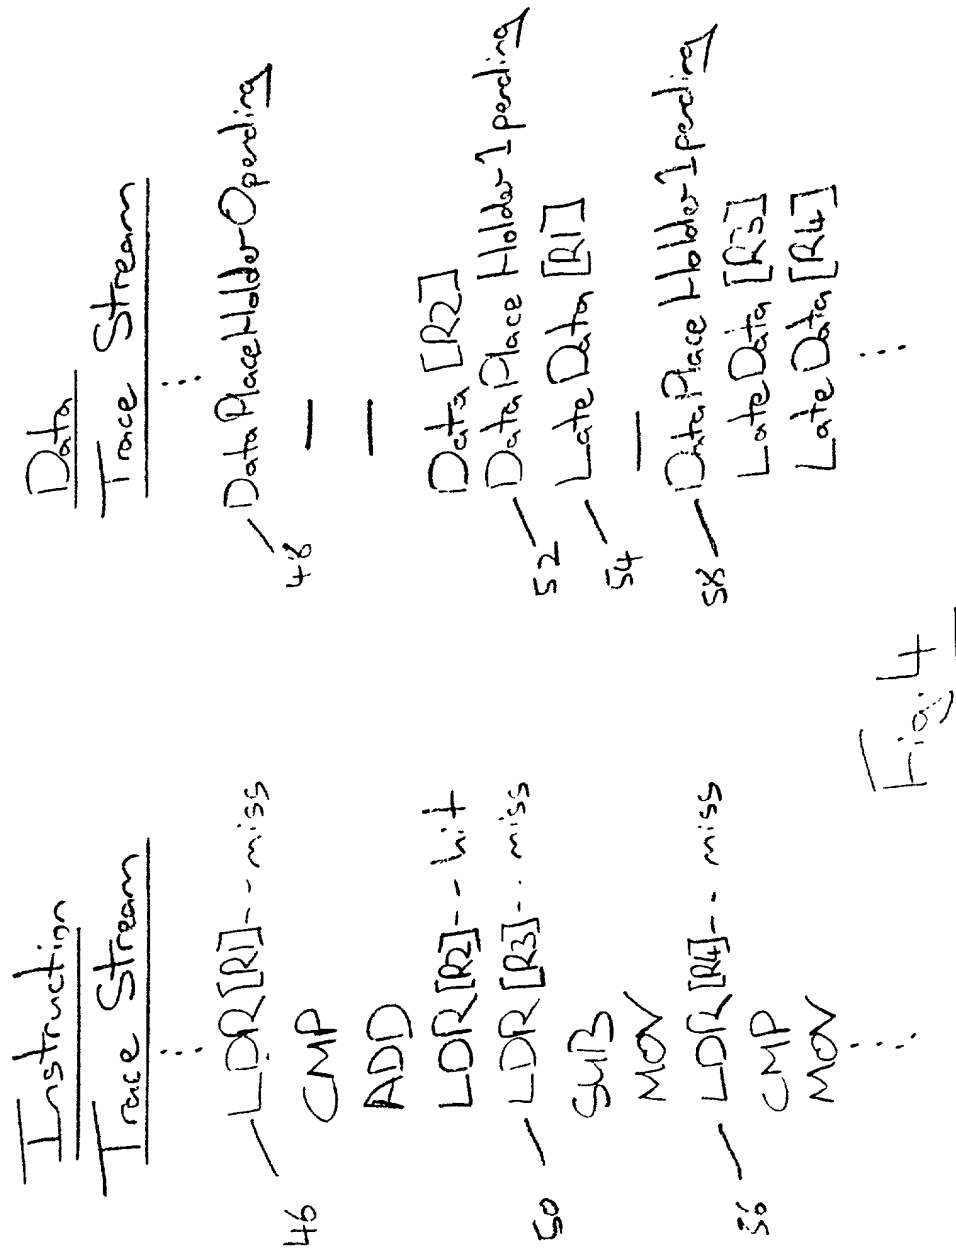 Instruction
Trace Stream
46 LDR [R1]--miss
CMP
ADD
LDR [R2]--hit
50 LDR [R3]--miss
SUB
MOV
56 LDR [R4]--miss
CMP
MOV
Data
Trace Stream
48 DataPlaceHolder0pending
Data [R2]
52 DataPlaceHolder1pending
54 LateData [R1]
58 DataPlaceHolder1pending
LateData [R3]
LateData [R4]
Fig. 4